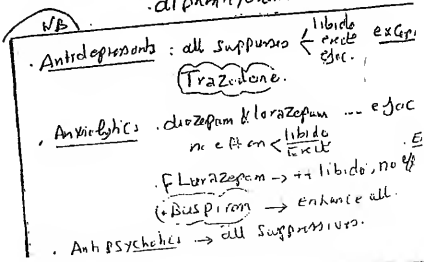 NB
. Antidepressants : all suppresses libido
erect
ejac. except
Trazodone.
. Anxiolytics . diazepam & lorazepam ... ejac
no eff on libido
Erect
. FLurazepam → ++ libido, no eff
(+Buspiron → Enhance all.
. Antipsychotics → all suppressives.